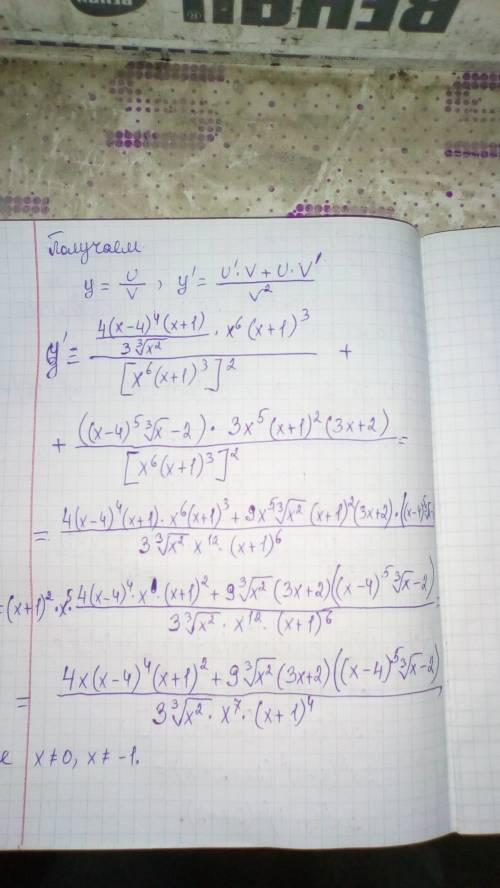 BEHAM
Получаем
y = U/V, y' = (U'·V + U·V')/V²
y' = (4(x-4)⁴(x+1)/(3∛x²) · x⁶(x+1)³)/[x⁶(x+1)³]² +
+ (((x-4)⁵∛x - 2) · 3x⁵(x+1)²(3x+2))/[x⁶(x+1)³]² =
= (4(x-4)⁴(x+1)·x⁶(x+1)³ + 9x⁵∛x²(x+1)²(3x+2)·((x-4)⁵∛x)/(3∛x² x¹²·(x+1)⁶)
=(x+1)²·x⁵·(4(x-4)⁴·x·(x+1)² + 9∛x²(3x+2)((x-4)⁵∛x-2))/(3∛x²·x¹²·(x+1)⁶) =
= (4x(x-4)⁴(x+1)² + 9∛x²(3x+2)((x-4)⁵∛x-2))/(3∛x²·x⁷·(x+1)⁴),
x≠0, x≠-1.